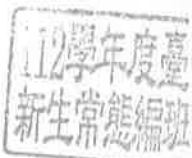 112學年度臺
新生常態編班